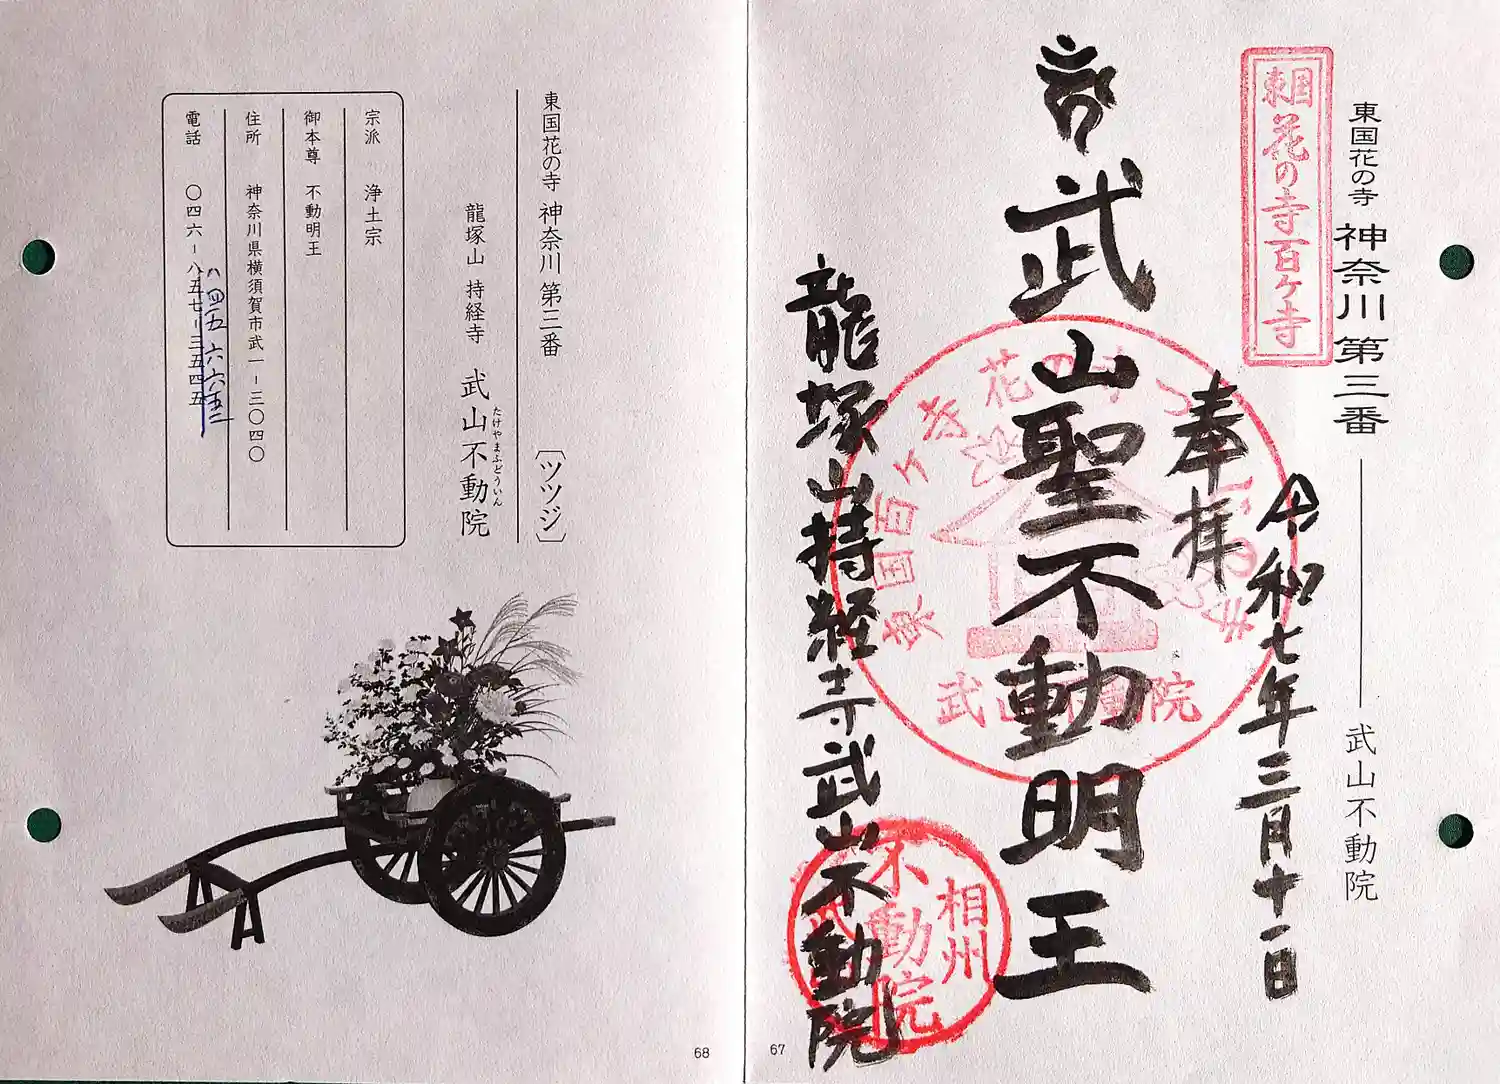 東国花の寺 神奈川 第三番 武山不動院
東国花の寺百ヶ寺
奉拝
令和七年三月十一日
武山聖不動明王
龍塚山持経寺武山不動院
東国百ヶ寺 花の寺
武山不動院
相州
不動院
67
東国花の寺 神奈川 第三番 〔ツツジ〕
龍塚山 持経寺 武山不動院
たけやまふどういん
宗派 浄土宗
御本尊 不動明王
住所 神奈川県横須賀市武一-三〇四〇
電話 〇四六-八五七-三五四五
68